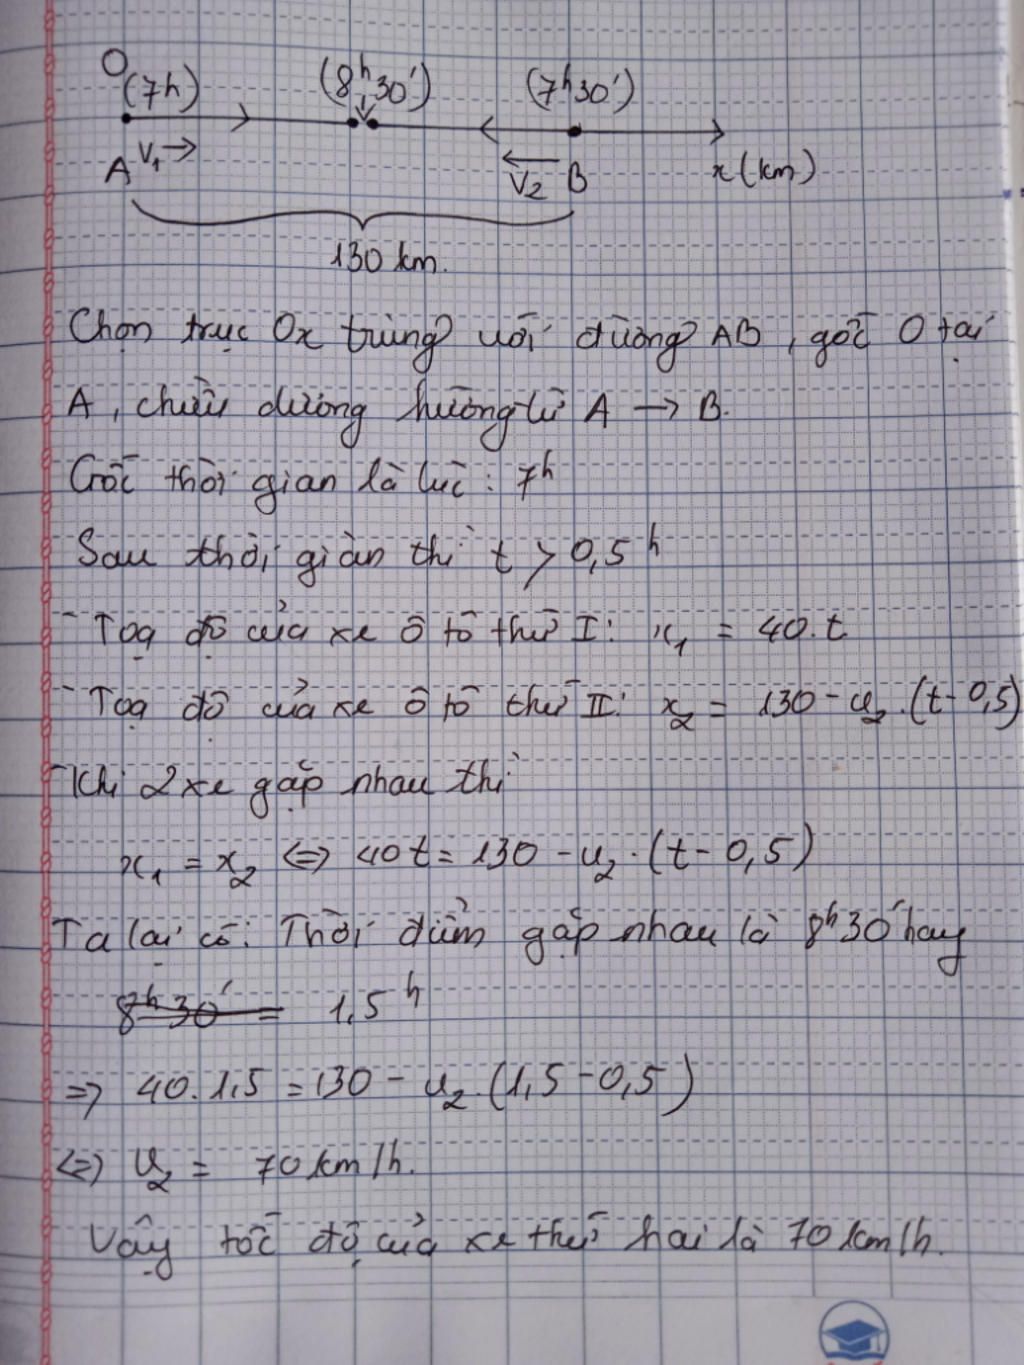 O
(7h) (8h30') (7h30')
A V1 → V2 B x(km)
130 km.
Chọn trục Ox trùng với đường AB, gốc O tại
A, chiều dương hướng từ A → B.
Gốc thời gian là lúc: 7h
Sau thời gian thì t > 0,5h
- Toạ độ của xe ô tô thứ I: x1 = 40.t
- Toạ độ của xe ô tô thứ II: x2 = 130 - v2.(t-0,5)
- Khi 2 xe gặp nhau thì
x1 = x2 <=> 40t = 130 - v2.(t-0,5)
Ta lại có: Thời điểm gặp nhau là 8h30' hay
8h30' = 1,5h
=> 40.1,5 = 130 - v2.(1,5-0,5)
<=> v2 = 70 km/h.
Vậy tốc độ của xe thứ hai là 70 km/h.